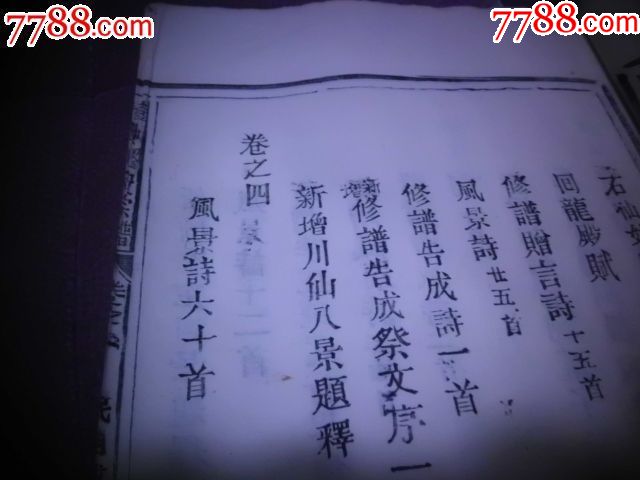 7788.com
7788.com
回龍殿賦
修譜贈言詩十五首
風景詩廿五首
修譜告成詩一首
新增修譜告成祭文序一
新增川仙八景題釋
卷之四
風景詩六十首